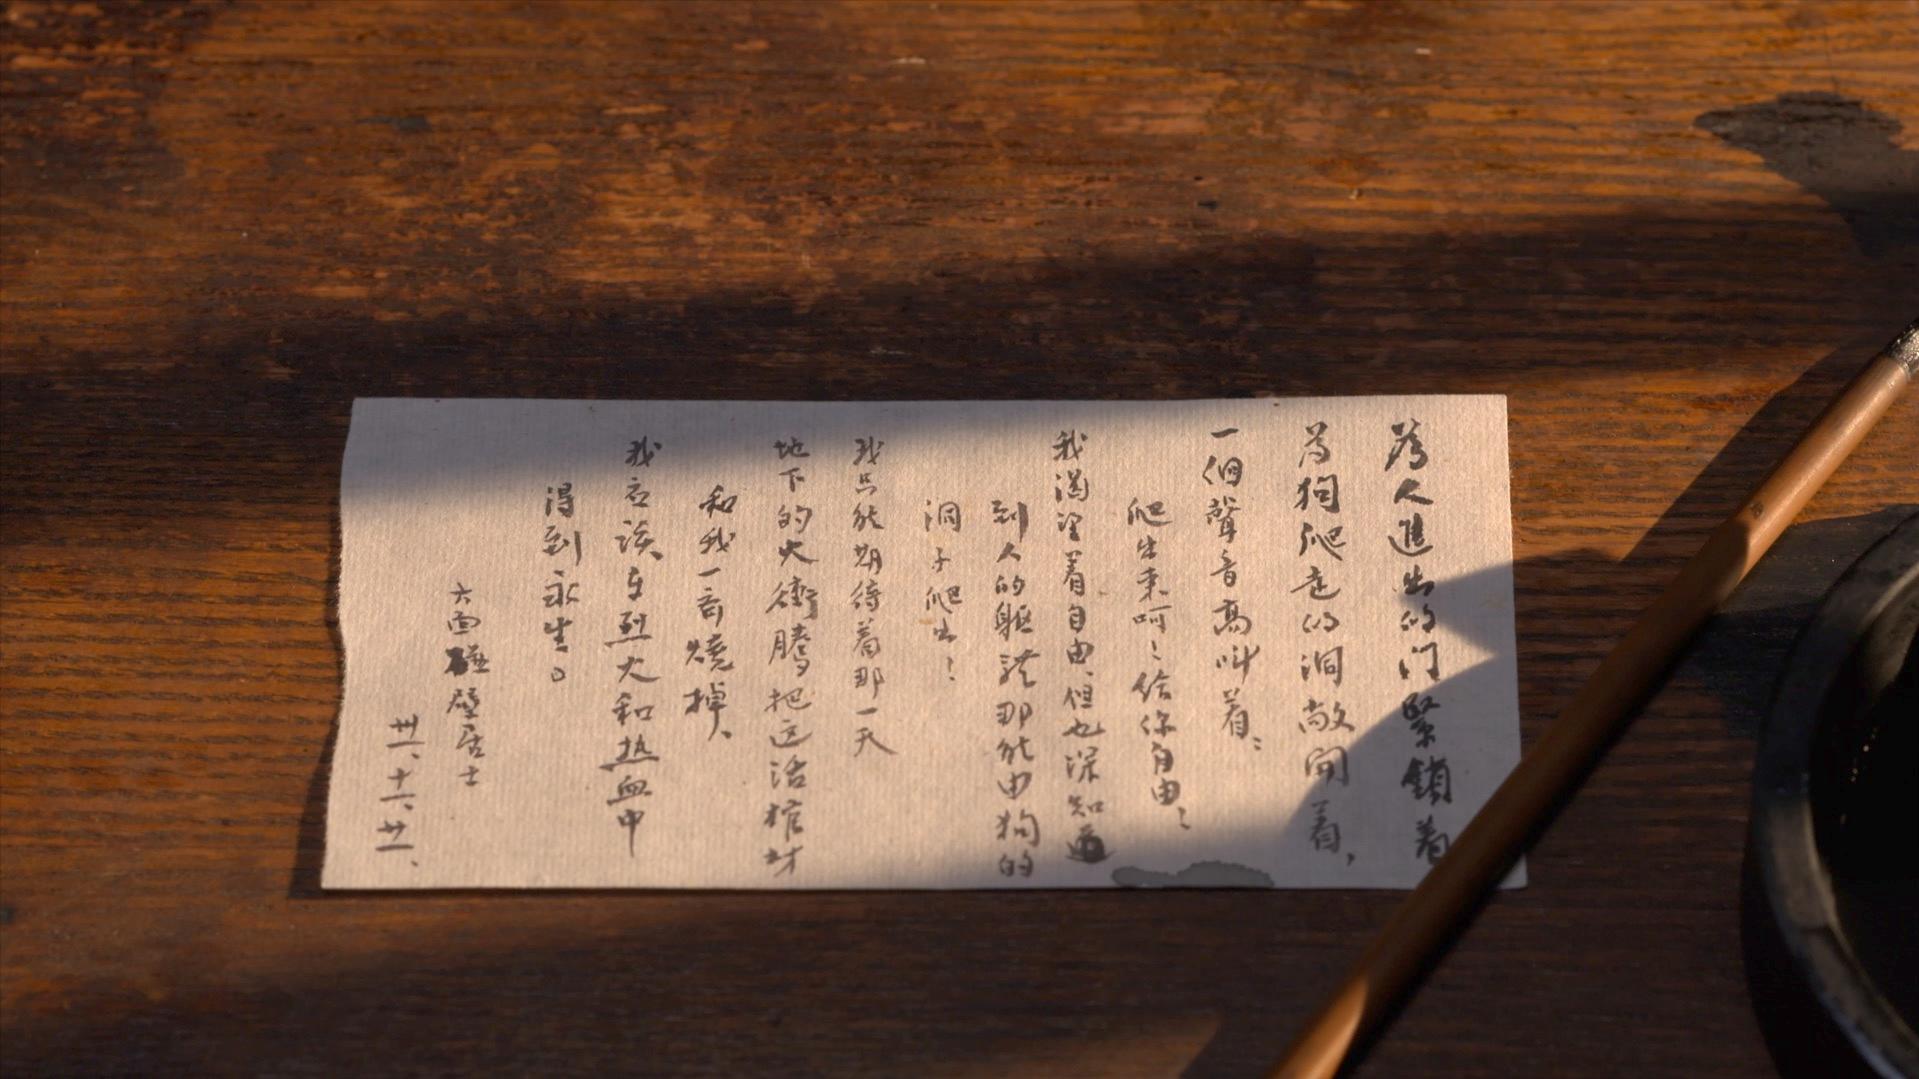 為人進出的门緊鎖着
為狗爬走的洞敞開着，
一個聲音高叫着：
爬出来呵！给你自由！
我渴望着自由、但也深知道
到人的軀体那能由狗的
洞子爬出！
我只能期待着那一天
地下的火衝騰把这活棺材
和我一齊燒掉、
我应该在烈火和热血中
得到永生。
六面碰壁居士
卅一、十一、廿一、